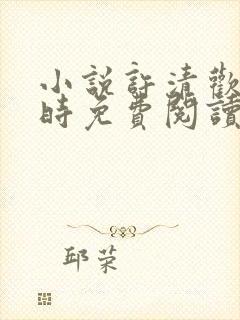 小說許清歡
時免費閱讀
邱荣